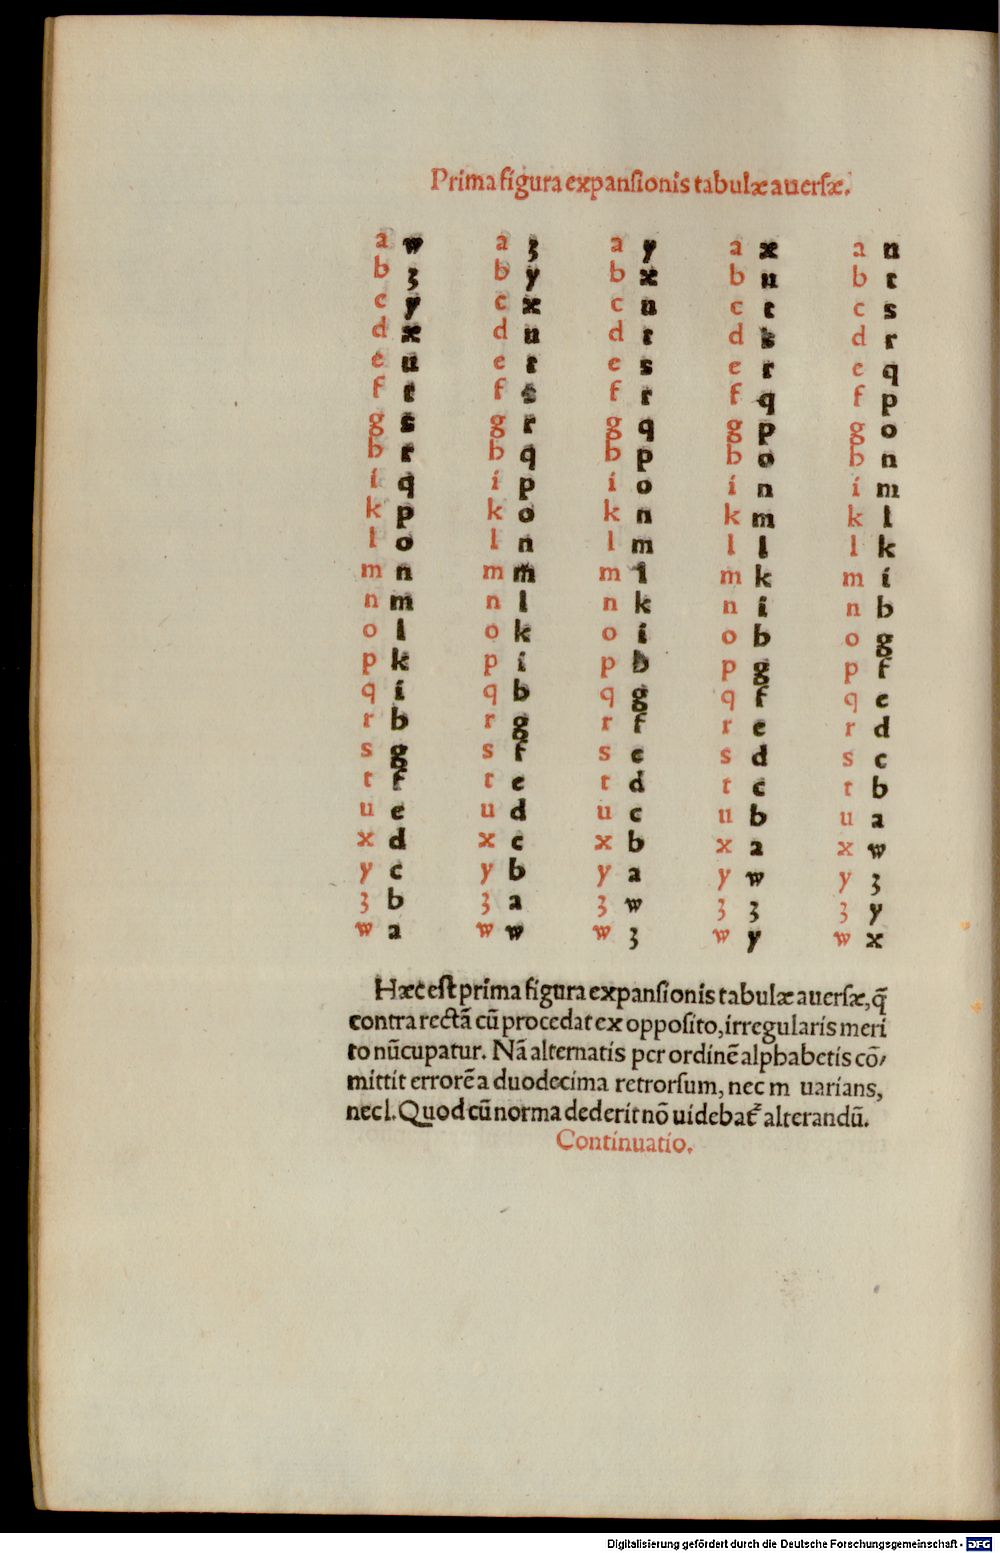 Prima figura expansionis tabulæ auersæ.
a w a ʒ a y a x a u
b ʒ b y b x b u b t
c y c x c u c t c s
d x d u d t d s d r
e u e t e s e r e q
f t f s f r f q f p
g s g r g q g p g o
h r h q h p h o h n
i q i p i o i n i m
k p k o k n k m k l
l o l n l m l l l k
m n m m m l m k m i
n m n l n k n i n h
o l o k o i o h o g
p k p i p h p g p f
q i q h q g q f q e
r h r g r f r e r d
s g s f s e s d s c
t f t e t d t c t b
u e u d u c u b u a
x d x c x b x a x w
y c y b y a y w y ʒ
ʒ b ʒ a ʒ w ʒ ʒ ʒ y
w a w w w ʒ w y w x
Hæc est prima figura expansionis tabulæ auersæ, q̄
contra rectā cū procedat ex opposito, irregularis meri
to nūcupatur. Nā alternatis per ordinē alphabetis cō/
mittit errorē a duodecima retrorsum, nec m uarians,
nec l. Quod cū norma dederit nō uidebat᷑ alterandū.
Continuatio.
Digitalisierung gefördert durch die Deutsche Forschungsgemeinschaft - DFG